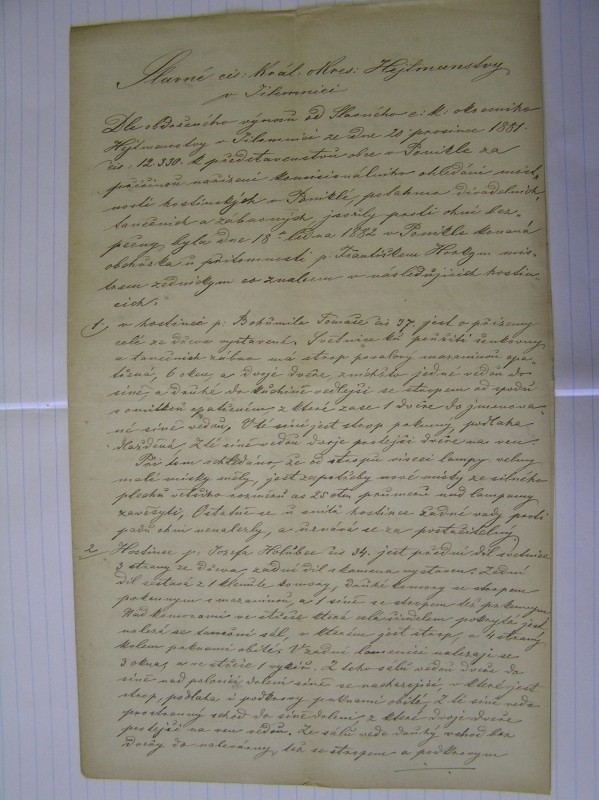 Slavné cis: Král: okres: Hejtmanství
v Jilemnici
Dle obdrženého výnosu od Slavného c: k: okresního
Hejtmanství v Jilemnici ze dne 20 prosince 1881.
čis. 12.330. k představenstvu obce v Ponikla za
příčinou nařízení komisionálního ohledání míst-
ností hostinských v Poniklé, potahmo divadelních,
tanečních a zábavných, jsouly proti ohni bez-
pečny, byla dne 18ho ledna 1882 v Ponikle konaná
obchůzka u přítomnosti p: Františkem Horkym mis-
trem zednickym co znalcem v následujících hostin-
cích:
1, v hostinci p: Bohumila Tomáše čis 37. jest o přízemy
celé ze dřeva vystavené. Světnice ku použití šenkovny
a tanečních zábav má strop povalový mazaninou opa-
třená, 6 oken a dvoje dveře, z nichžto jedne vedou do
síně, a druhé do kuchině vedlejší se stropem od spodu
omítkou opatřeném, z které zase 1 dvéře do jmenova-
né síně vedou, V té síni jest strop prkenny, podlaha
dlážděná, Z té síně vedou dvoje protější dvéře na ven.
Při tom ohledáno, že od stropu visecí lampy velmy
malé misky měly, jest zapotřeby nové místy ze silného
plechu velkého rozměru as 25 ctm průměru nad lampamy
zavěsyti, Ostatně se u vnitř hostince žádné vady proti
pádu ohni nenalezly, a uznává se za postačitelný
2, Hostinec p: Josefa Holubce čis 34. jest přední díl světnice
3 strany ze dřeva, zadní díl z kamena vystaven. Zadní
díl sestává z 1 klenuté komory, druhé komory se stropem
prkennym s mazaninou, a 1 síně se stropem též prkennym
Nad komorami ve střeše která celá šindelem pokrytá jest
nalezá se taneční sál, v kterém jest strop, a 4 strany
kolem prknami obité. V zadní lomenici nalezají se
3 okna, a ve střeše 1 vykýř. Z toho sálu vedou dveře do
síně nad polovicí dolení síně se nacházející, v které jest
strop, podlaha i podkrovy prknami obité, Z té síně vede
prostranný schod do síně dolení, z které dvoje dveře
protější na ven vedou. Ze sálu vede druhý vchod bez
dveřý do nalevárny, též se stropem a podkrovym